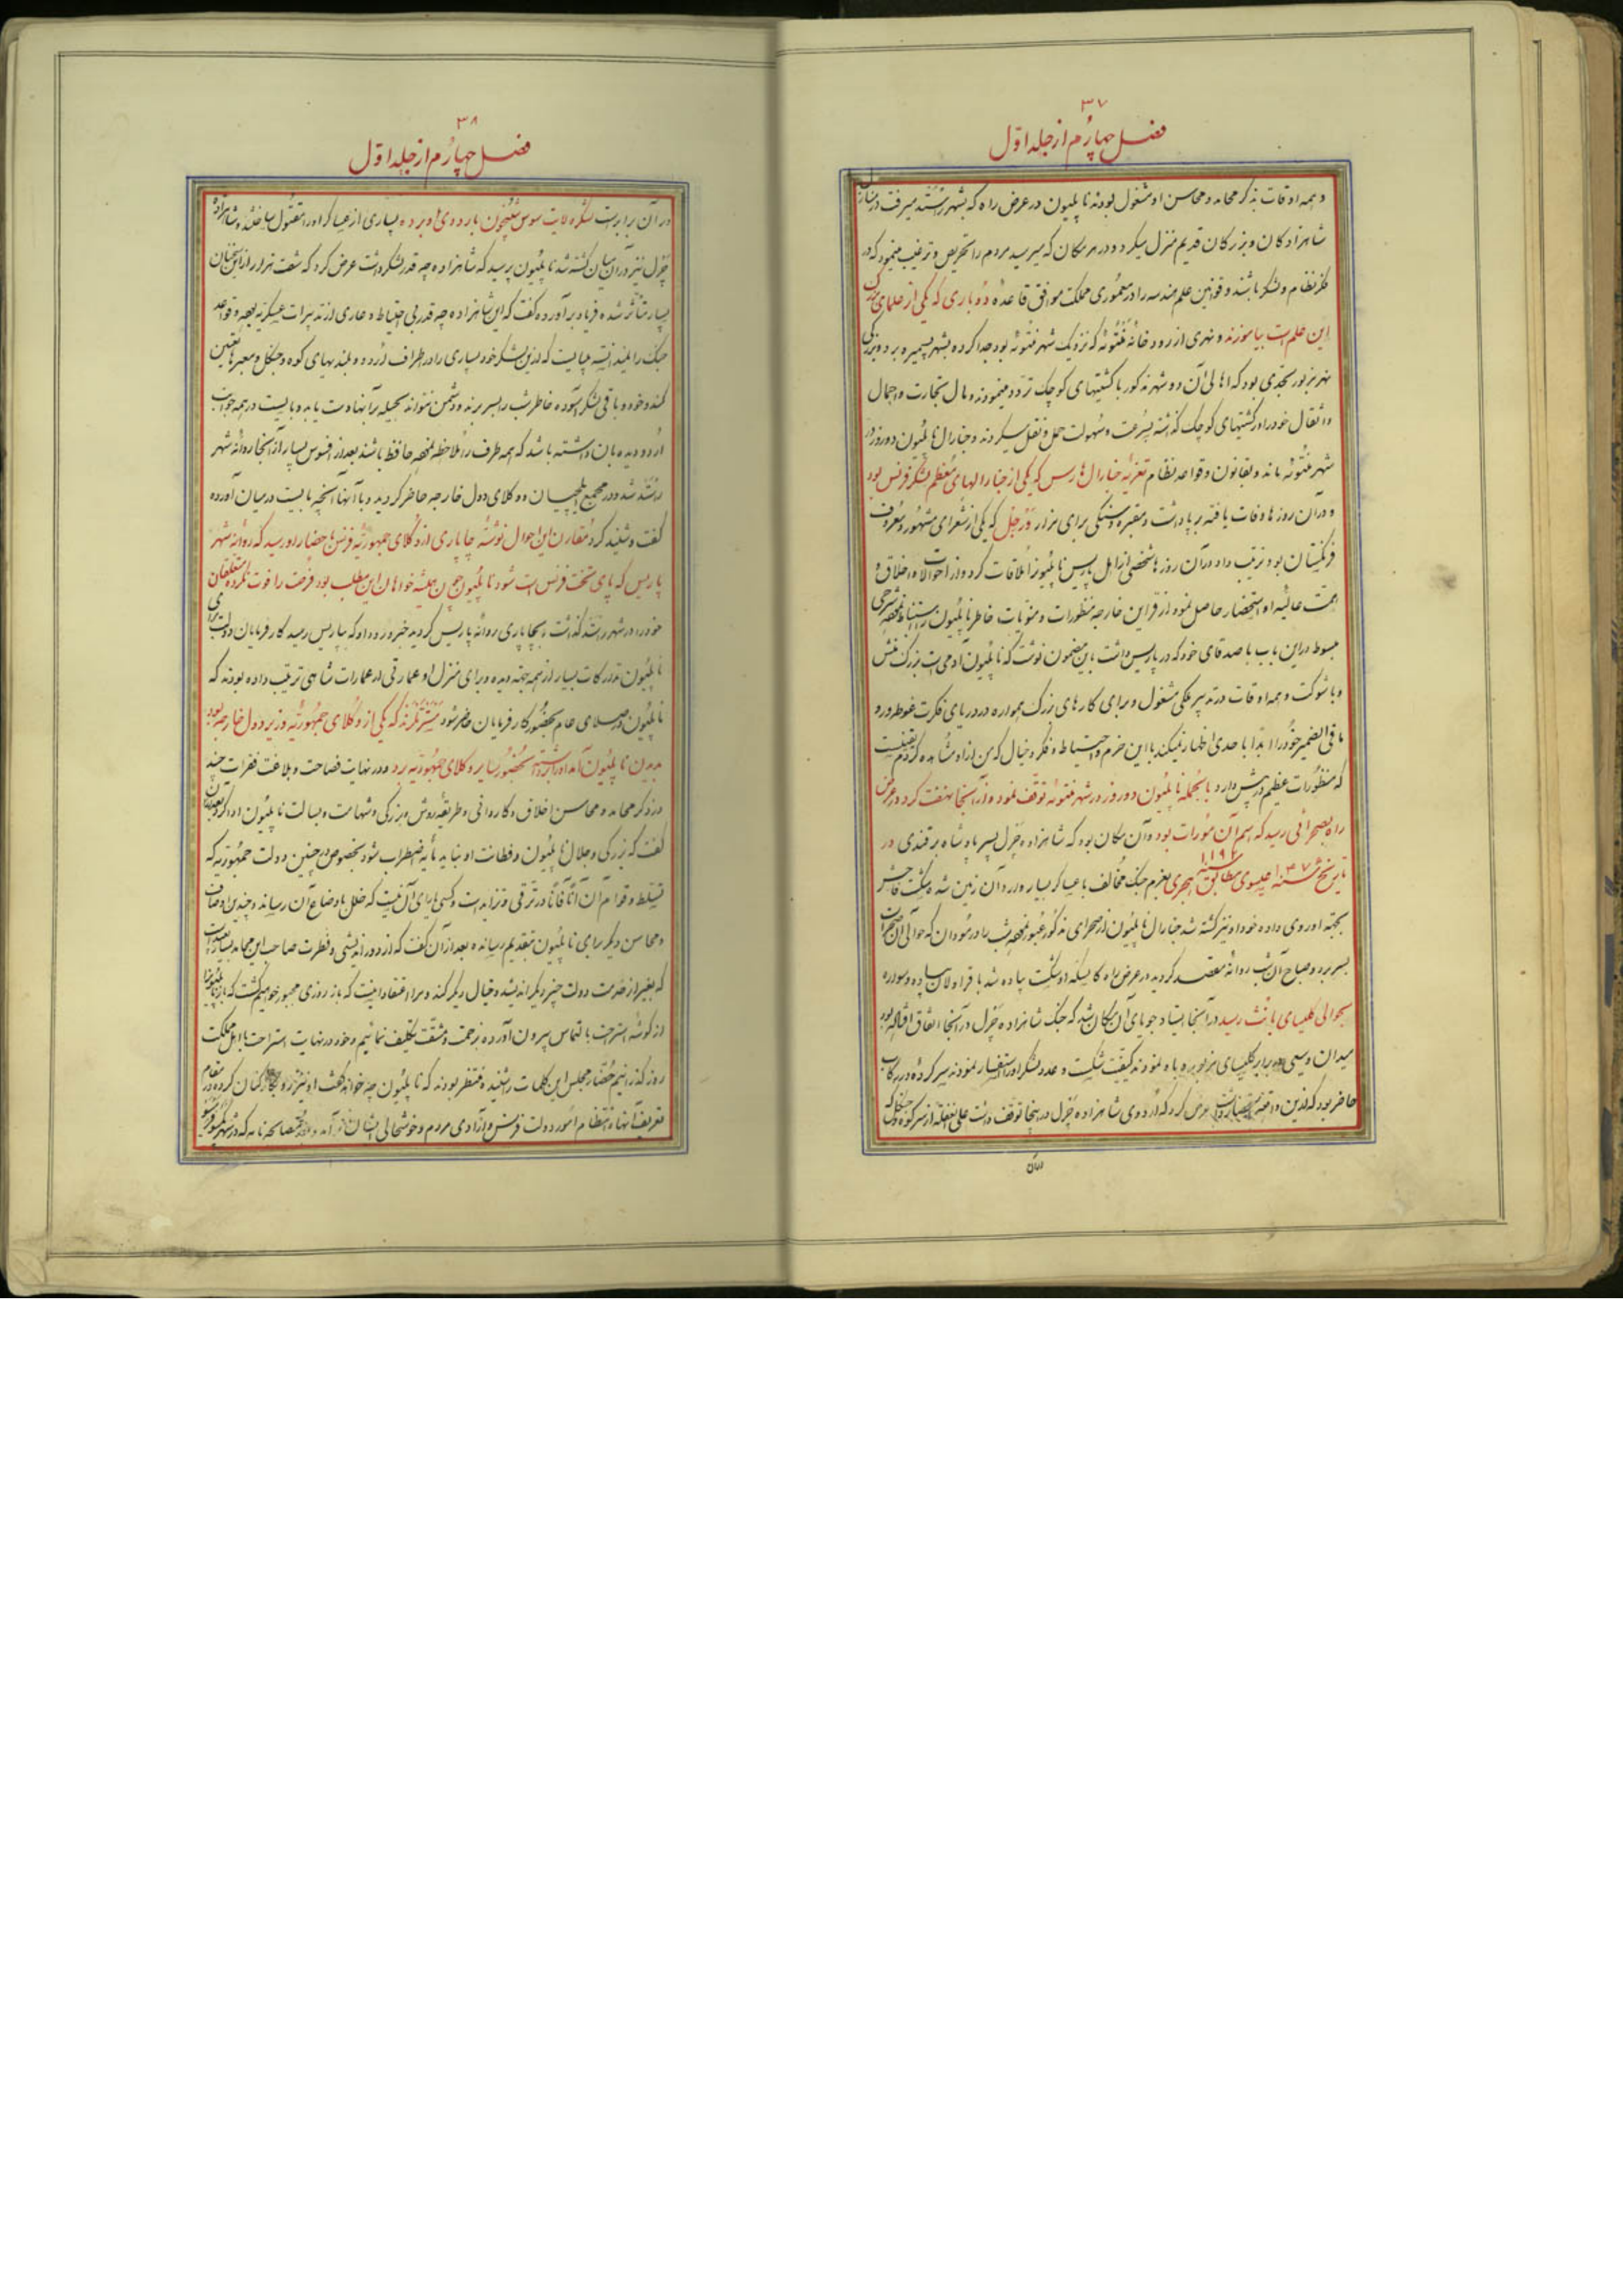 ۳۷
فصل چهارم از جلد اوّل
و همه اوقات بذکر محامد و محاسن او مشغول بودند ناپلیون در عرض راه که بشهر رستد میرفت در منازل
شاهزادکان و بزرکان قدیم منزل میکرد و در هر مکان که میرسید مردم را تحریص و ترغیب مینمود که در
فکر نظام و لشکر باشند و قوانین علم هندسه را در معموری مملکت موافق قاعده دوباری که یکی از علمای بزرک
این علم است بیاموزند و نهری از رودخانه منتوئه که نزدیک شهر منتوئه بود جدا کرده بشهر برد و بزرکی
نهر بزور بحدّی بود که اهالی آن دو شهر مذکور با کشتیهای کوچک تردد مینمودند و مال تجارت و احمال
و اثقال خود را در کشتیهای کوچک گذاشته بسرعت و سهولت حمل و نقل میکردند و جنارال ناپلیون دو روز در
شهر منتوئه ماند و بقانون و قواعد نظام تعزیه جنارال هارس که یکی از جنارالهای معظم لشکر فرانس بود
و در آن روزها وفات یافته برپا داشت و مقبره و سنگی برای مزار ورجل که یکی از شعرای مشهور و معروف
فرنگستان بود ترتیب داد در آن روزها شخصی از اهل پاریس ناپلیون را ملاقات کرد و از احوالات و اخلاق و
همت عالیه او استحضار حاصل نمود از قراین خارجه منظورات و منویات خاطر ناپلیون استنباط شرحی
مبسوط در این باب با صدقای خود که در پاریس داشت باین مضمون نوشت که ناپلیون آدمی است بزرک منش
و با شوکت و همه اوقات در تدبیر ملکی مشغول و برای کارهای بزرک همواره در دریای فکرت غوطه‌ور و
ما فی الضمیر خود را ابدا با حدی اظهار نمیکند با این حزم و احتیاط و فکر و خیال که من از او مشاهده کردم
که منظورات عظیم در پیش دارد بالجمله ناپلیون دو روز در شهر منتوئه توقف نمود و از آنجا نهضت کرد در عرض
راه بصحرائی رسید که اسم آن مورات بود و آن مکان بود که شاهزاده چرل پسر پادشاه برقندی در
تاریخ سنه عیسوی مطابق سنه هجری بعزم جنک مخالف با عساکر بسیار وارد آن زمین شد و شکست فاحش
بجبه او روی داده خود او نیز کشته شد جنارال ناپلیون از صحرای مذکور عبور شب را در مودان که حوالی آن
بسر برد و صباح آن شب روانه مقصد کردید در عرض راه کالسکه او شکست پیاده شد با قراولان پیاده و سواره
بحوالی کلیسای بانث رسید در آنجا ایستاد جویای آن مکان شد که جنک شاهزاده چرل در آنجا اتفاق افتاد
میدان وسیعی در برابر کلیسای مزبور باو نمودند کیفیت شکست و عدد لشکر او را استفسار نمودند سرکرده در رکاب
حاضر بود که از این واقعه عرض کرد که اردوی شاهزاده چرل در اینجا توقف داشت علی الغفله از سر کوه
۳۸
فصل چهارم از جلد اوّل
در آن برابر است لشکر ولایت سوس بیخون باردوی او برده بسیاری از عساکر او را مقتول ساختند و شاهزاده
چرل نیز در آن میان کشته شد ناپلیون پرسید که شاهزاده چه قدر لشکر داشت عرض کرد که شصت هزار
بسیار متأثر شده فریاد برآورده گفت که این شاهزاده چه قدر بی احتیاط و عاری از تدبیرات عسکریه بوده و قواعد
جنک را میدانسته میبایست که از این لشکر خود بسیاری را در اطراف اردو و بلندیهای کوه و جنگل و معبرها تعیین
کند و خود و باقی لشکر آسوده خاطر شب را بسر برند و دشمن نتواند بحیله بر آنها دست یابد و بایست در همه جوانب
اردو دیده بان داشته باشد که همه طرف را ملاحظه محافظ باشند بعد از افسوس بسیار از آنجا روانه شهر
رستد شد و در مجمع ایلچیان و وکلای دول خارجه حاضر کردید و با آنها آنچه بایست در میان آورده
گفت و شنید کرد مقارن این احوال نوشته چاپاری از وکلای جمهوریه فرنس باحضار او رسید که روانه شهر
پاریس که پای تخت فرنس است شود ناپلیون چون همیشه خواهان این مطلب بود فرصت را فوت نکرده متعلقان
خود را در شهر رستد گذاشت بچاپاری روانه پاریس کردید خبر ورود او که بپاریس رسید کارفرمایان دولت برای
ناپلیون تدارکات بسیار از همه جهت دیده و برای منزل او عمارتی از عمارات شاهی ترتیب داده بودند که
ناپلیون در سلامی عام بحضور کارفرمایان حاضر شود مستر تلرند که یکی از وکلای جمهوریه وزیر دول خارجه بود
بدیدن ناپلیون آمد او را برداشته بحضور سایر وکلای جمهوریه برد و در نهایت فصاحت و بلاغت فقرات چند
در ذکر محامد و محاسن اخلاق و کاردانی و طریقه روش و بزرگی و شهامت و بسالت ناپلیون ادا کرد بعد از آن
گفت که بزرگی و جلال ناپلیون و فطانت او نباید مایه اضطراب شود بخصوص در چنین دولت جمهوریه که
تسلط و قوام آن آنا فانا در ترقی و تزاید است و کسی را یارای آن نیست که خلل باوضاع آن رساند و چندین اوصاف
و محاسن دیگر برای ناپلیون بتقدیم رسانده بعد از آن گفت که از دوراندیشی و فطرت صاحب این محامد بسیار
که بغیر از خدمت دولت چیز دیگر اندیشد و خیال دیگر کند و مرا اعتقاد اینست که باز روزی مجبور خواهیم گشت که باز ناپلیون را
از گوشه استراحت بالتماس بیرون آورده بزحمت و مشقت تکلیف نمائیم و خود در نهایت استراحت با اهل مملکت
روز گذرانیم حضار مجلس این کلمات را شنیده منتظر بودند که ناپلیون چه خواهد گفت او نیز
تعریف آنها و انتظام امور دولت فرنس و آزادی مردم و خوشحالی ایشان مصالحه نامه که در شهر